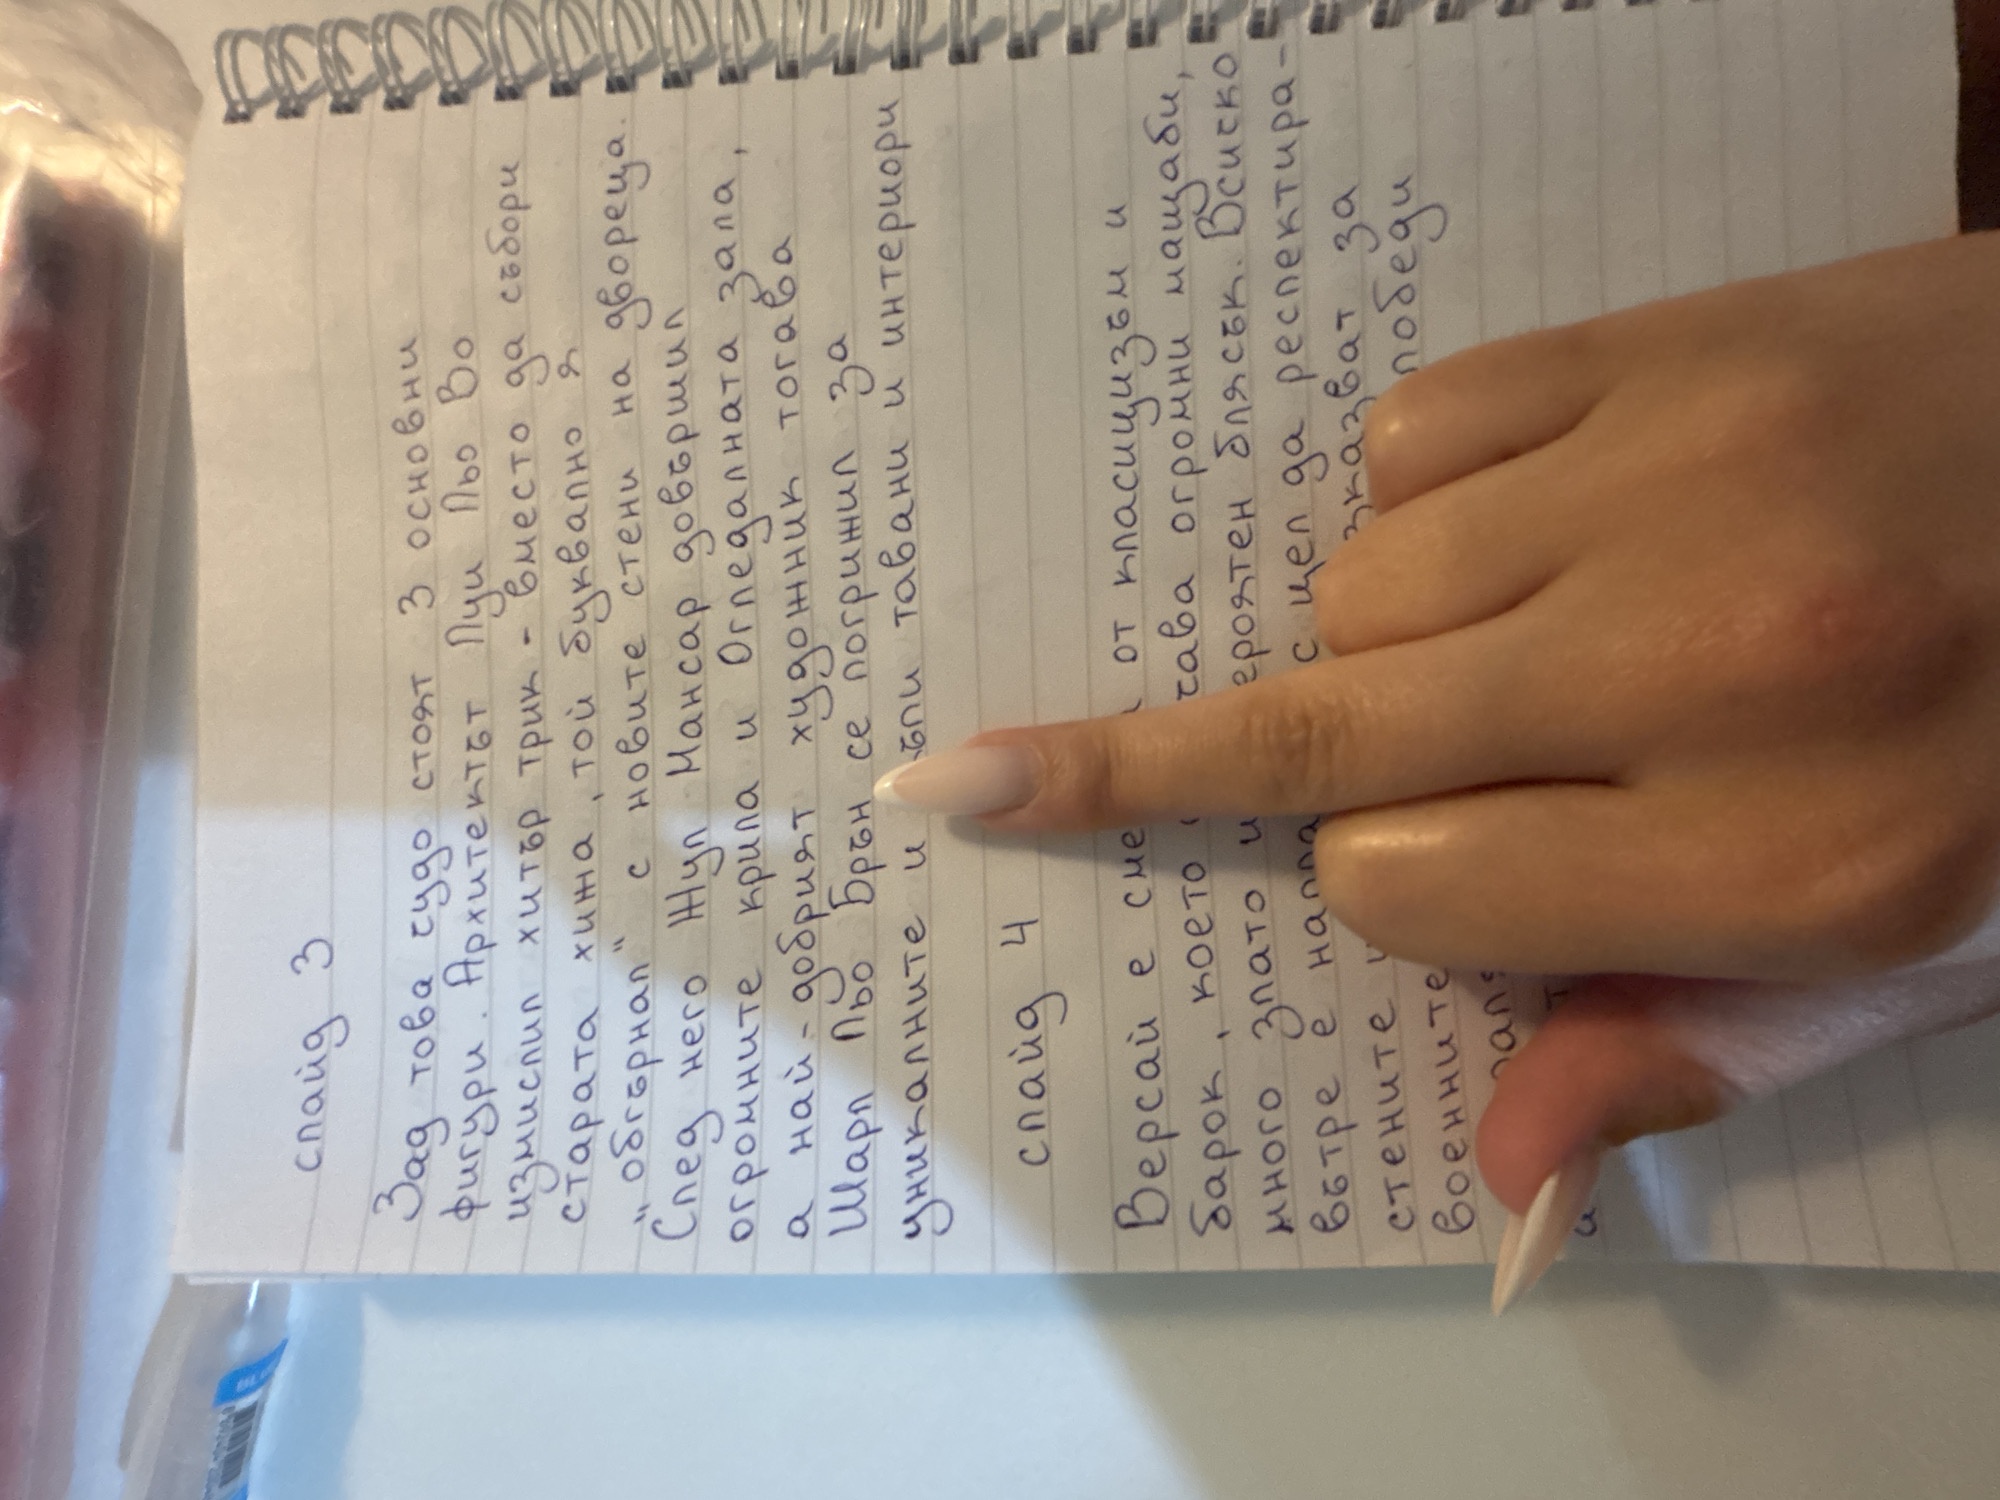 слайд 3
Зад това чудо стоят 3 основни
фигури. Архитектът Луи Льо Во
измислил хитър трик - вместо да събори
старата хижа, той буквално я
"обгърнал" с новите стени на двореца.
След него Жул Мансар довършил
огромните крила и Огледалната зала,
а най-добрият художник тогава
Шарл Льо Брън се погрижил за
уникалните и ъпи тавани и интериори
слайд 4
Версай е сме от класицизъм и
барок, което чава огромни мащаби,
много злато и ероятен блясък. Всичко
вътре е напра с цел да респектира-
стените казват за
военните победи